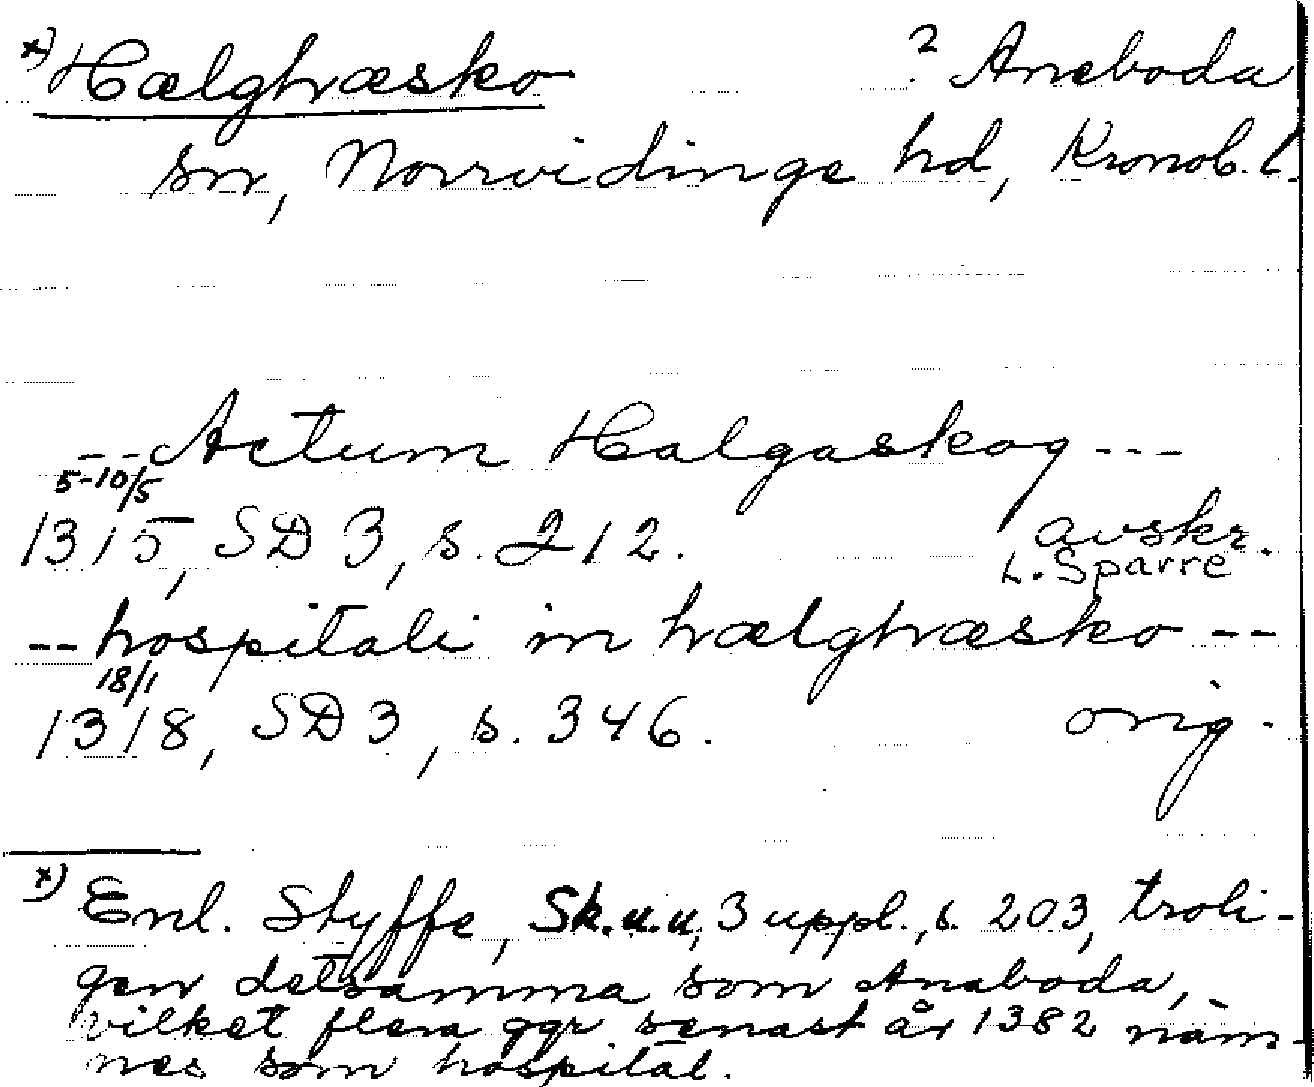 x) Hælghræsko ? Aneboda
sn, Norrvidinge hd, Kronob. l.
--- Actum Halgaskog ---
5-10/5
1315, SD 3, s. 212. avskr.
L. Sparre
-- hospitali in hælghræsko --
18/1
1318, SD 3, s. 346. orig.
x) Enl. Styffe, Sk.u.u, 3 uppl., s. 203, troli-
gen detsamma som Anaboda,
vilket flera ggr senast år 1382 näm-
nes som hospital.